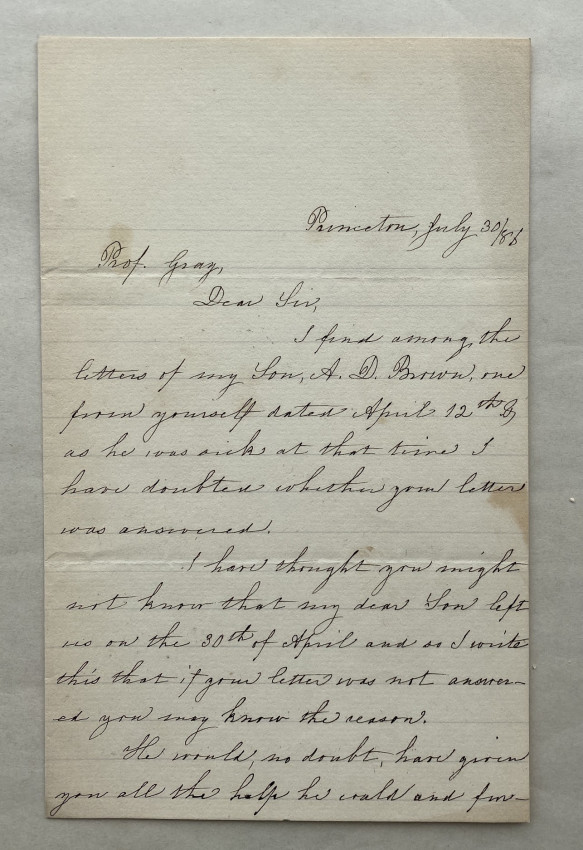 Princeton, July 30/86
Prof. Gray,
Dear Sir,
I find among the
letters of my Son, A. D. Brown, one
from yourself dated April 12th &
as he was sick at that time I
have doubted whether your letter
was answered.
I have thought you might
not know that my dear Son left
us on the 30th of April and so I write
this that if your letter was not answer-
ed you may know the reason.
He would, no doubt, have given
you all the help he could and fur-